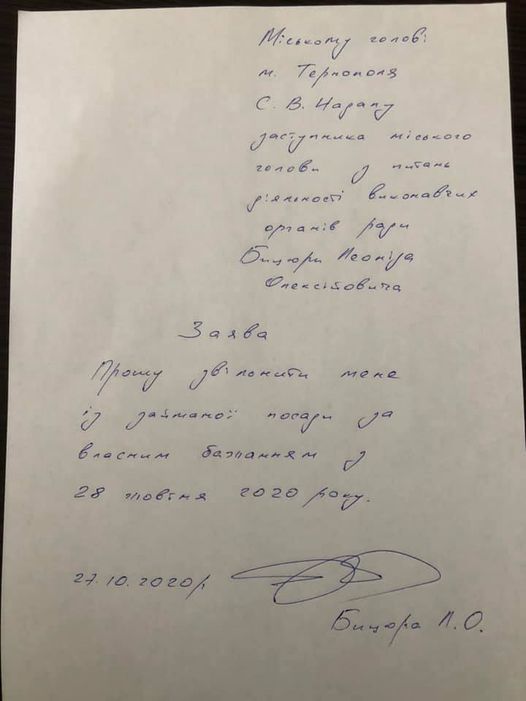 Міському голові
м. Тернополя
С. В. Надалу
заступника міського
голови з питань
діяльності виконавчих
органів ради
Бицюри Леоніда
Олексійовича
Заява
Прошу звільнити мене
із займаної посади за
власним бажанням з
28 жовтня 2020 року.
27.10.2020р
Бицюра Л.О.